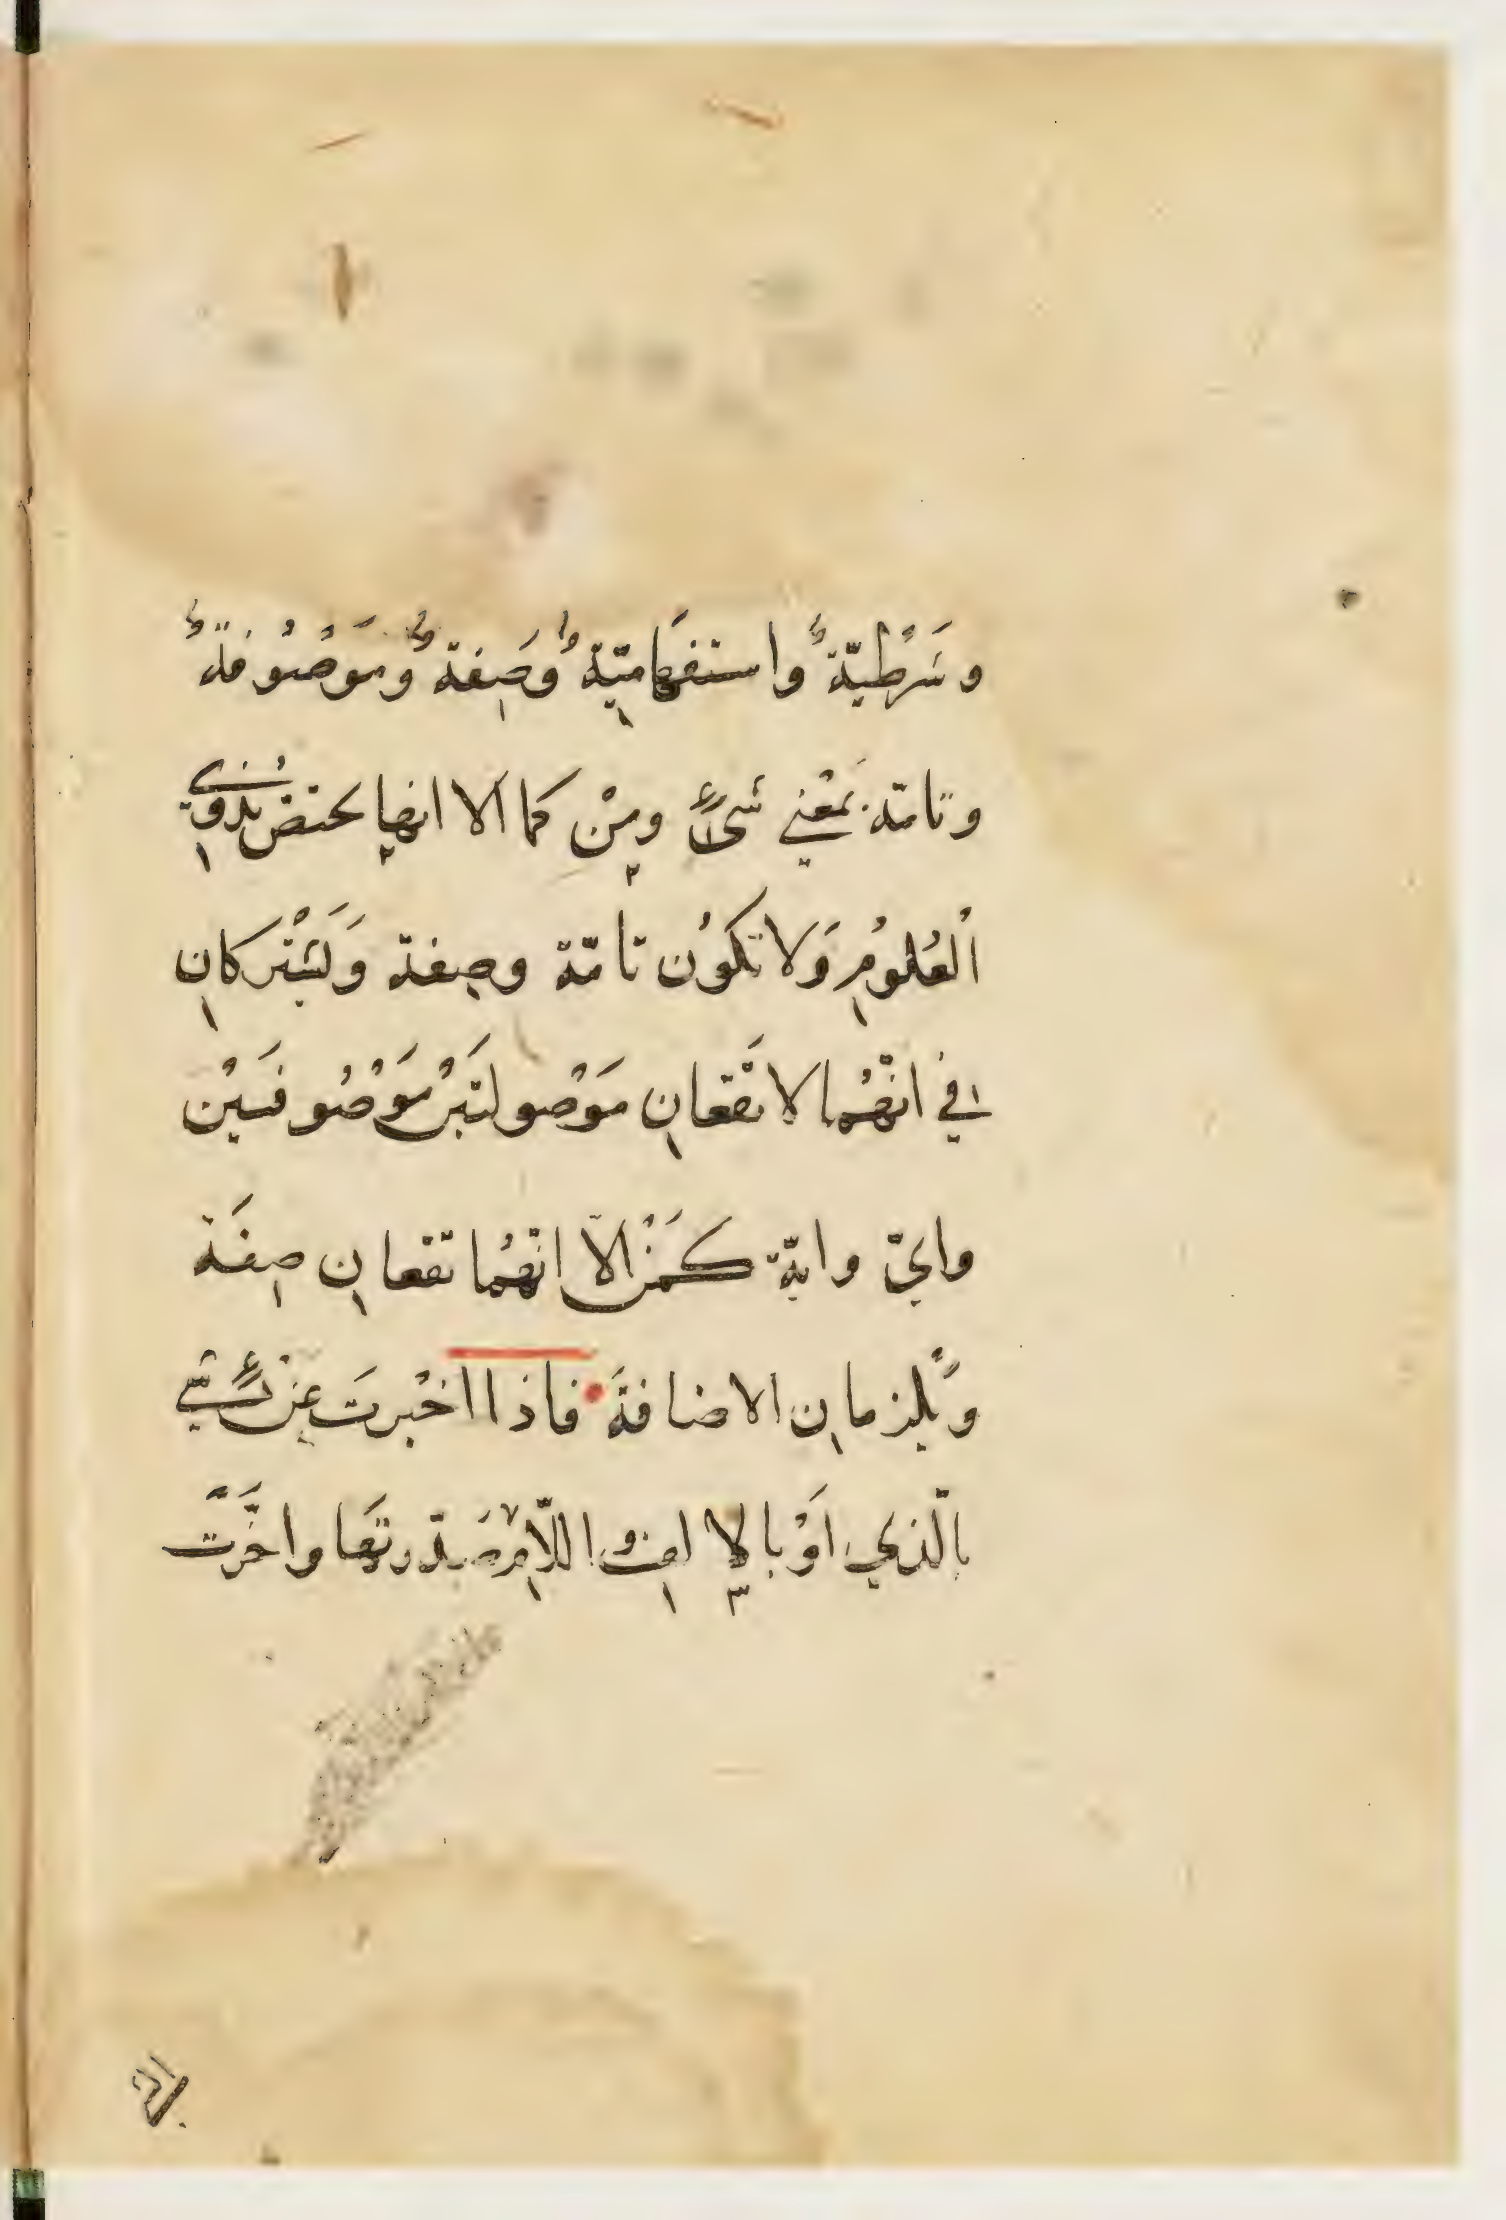 وشَرْطيّةٌ واستفهَاميّةٌ وصِفة وموَصُوفةٌ
وتامّة بمَعْني شيءٍ ومنْ كما الا انها يختص بذوي
الْعُلومِ وَلا تكوُن تامّة وصِفة وَيَشْتركانِ
في انّهُما لا تقعَانِ مَوْصُولتَيْن مَوْصُوفتَيْن
وايّ وايّة كَمَنْ الّا انّهُما تقعانِ صِفَة
ويَلزمانِ الاضافةَ فاذا اخْبرتَ عَنْ شيءٍ
بالّذي اَوْ بالالف واللّامِ صَدّرتَها واخَّرْت